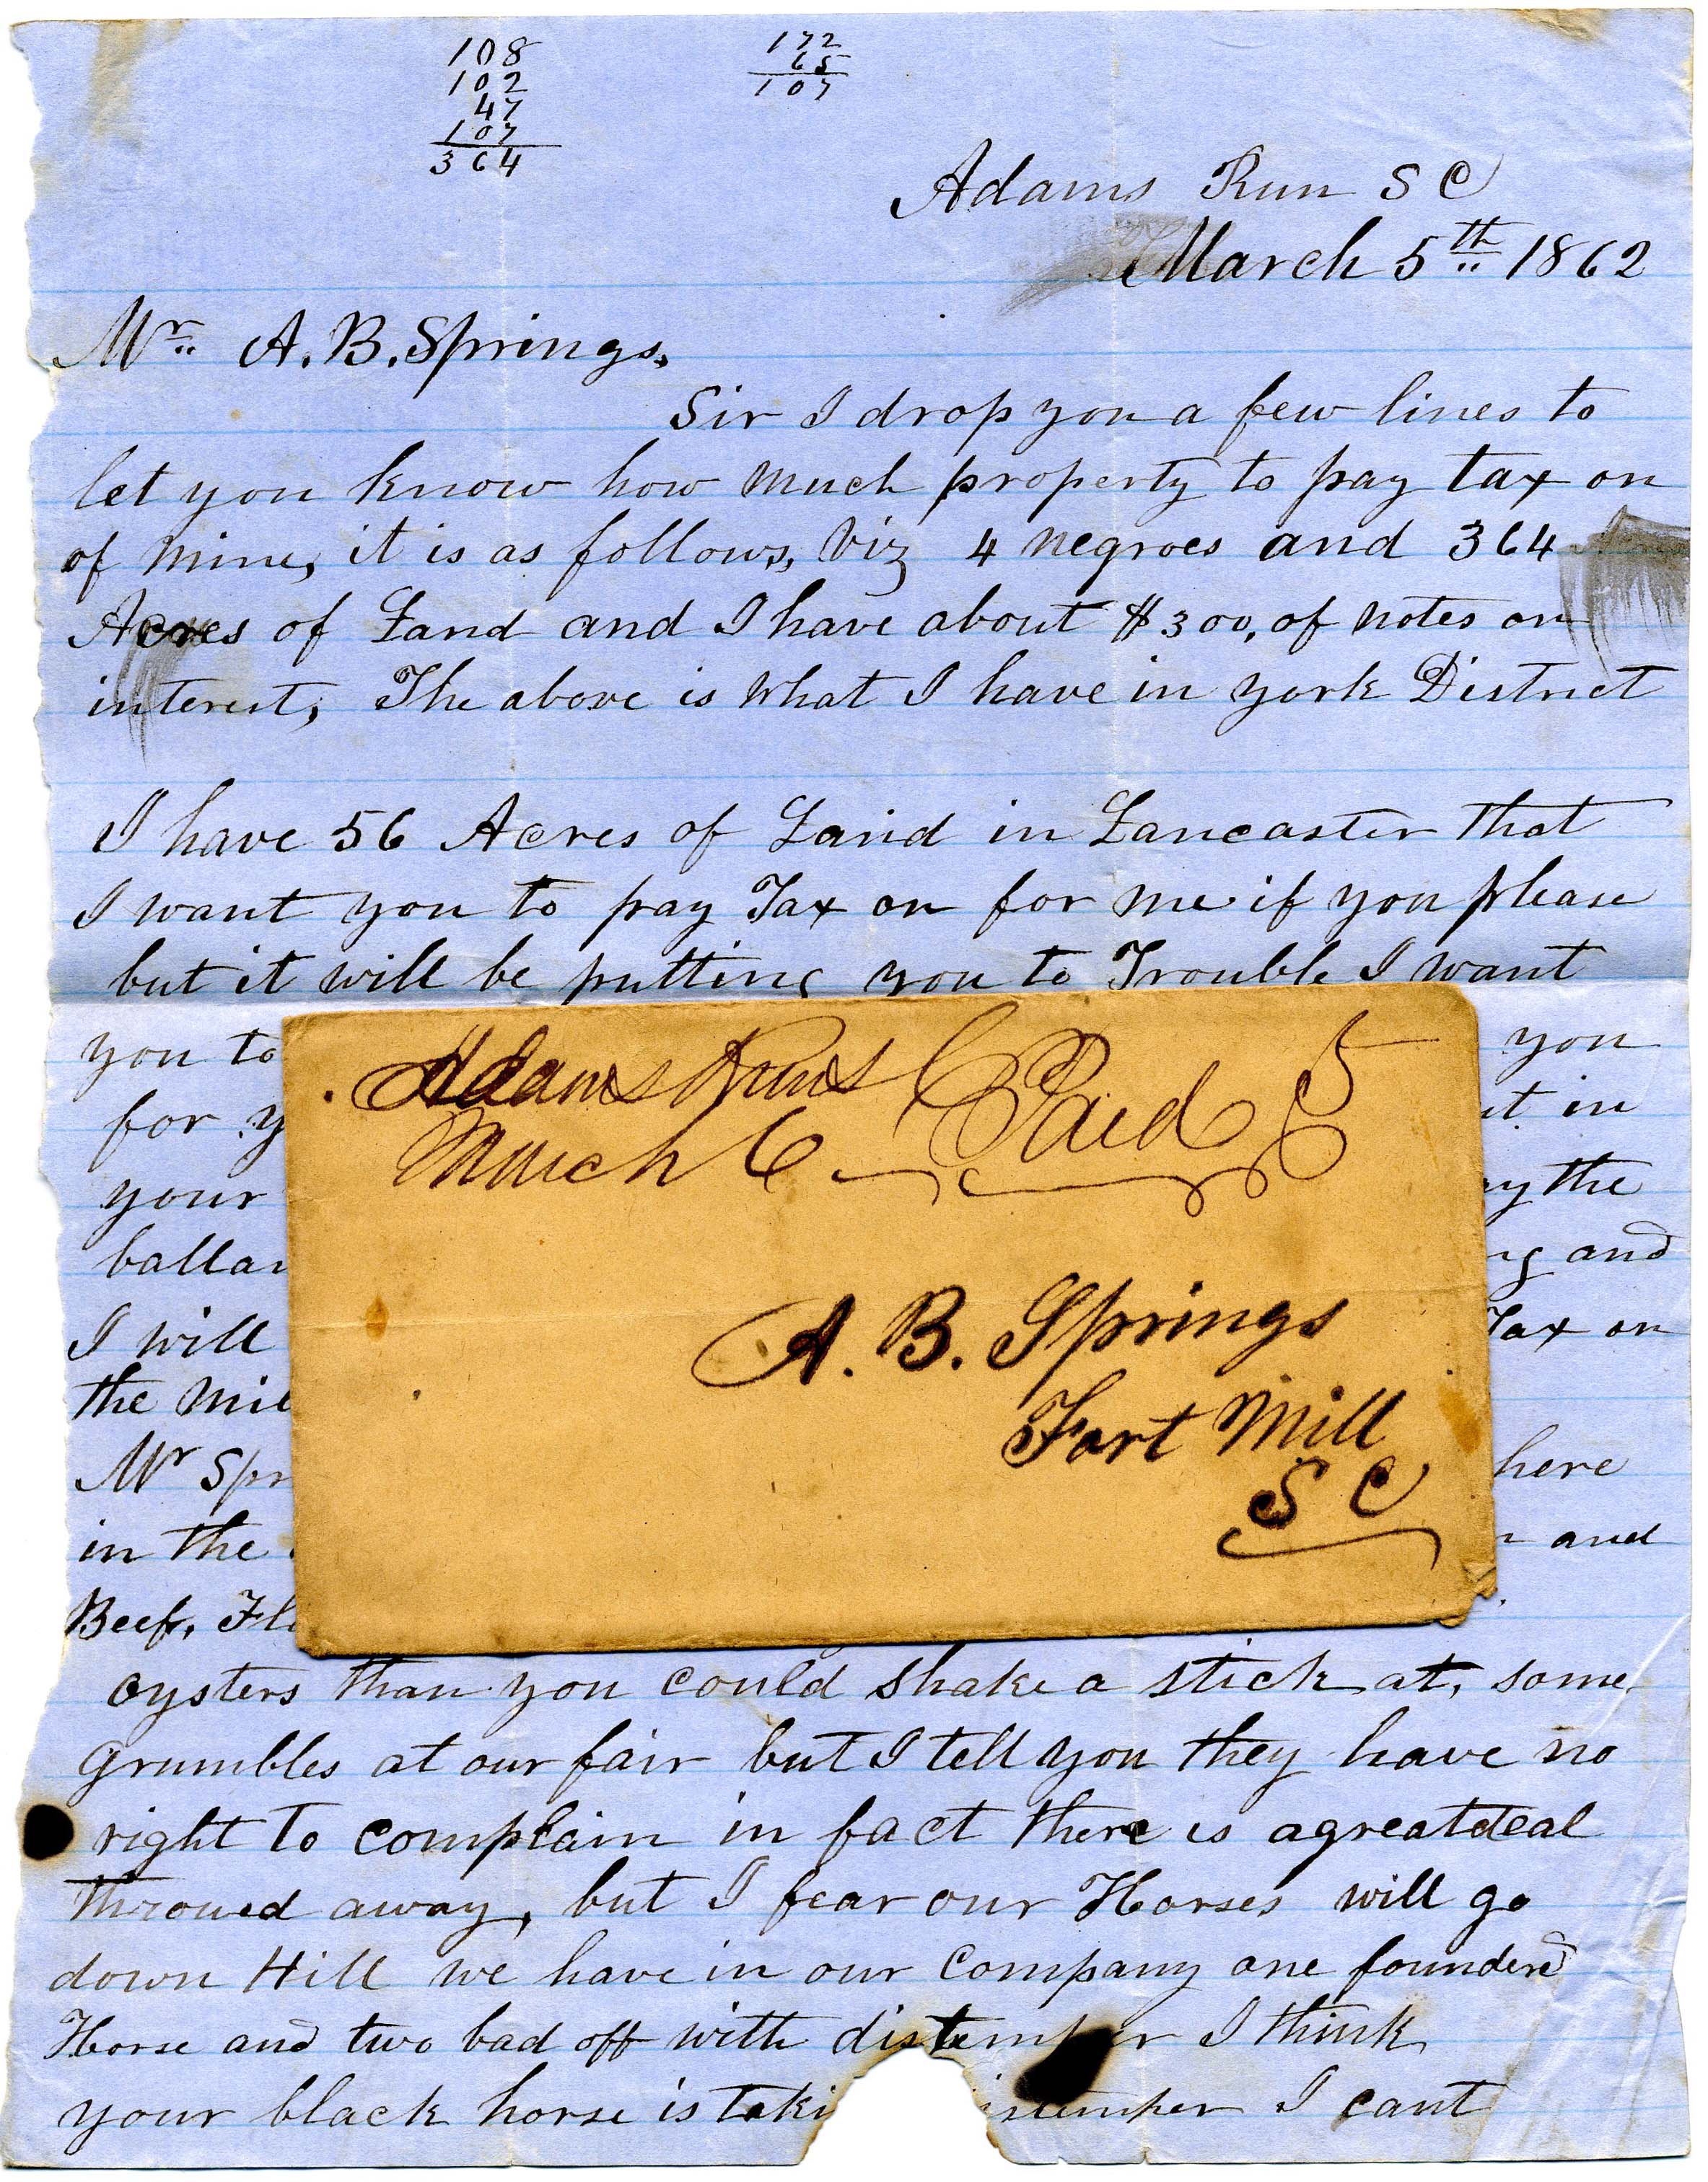 108
102
47
107
364
172
65
107
Adams Run S C
March 5th 1862
Mr. A. B. Springs,
Sir I drop you a few lines to
let you know how much property to pay tax on
of mine, it is as follows, Viz 4 negroes and 364
Acres of Land and I have about $300, of notes on
interest, The above is what I have in york District
I have 56 Acres of Land in Lancaster that
I want you to pay Tax on for me if you please
but it will be putting you to Trouble I want
you to you
for y it in
your the
ballan and
I will Tax on
the Mil
Mr Spr here
in the and
Beef, Fl
oysters than you could shake a stick at, some
grumbles at our fair but I tell you they have no
right to complain in fact there is a great deal
throwed away, but I fear our Horses will go
down Hill we have in our Company one foundered
Horse and two bad off with distemper I think
your black horse is taki istemper I cant
Adams Run S C Paid 5
March 6
A. B. Springs
Fort Mill
S C